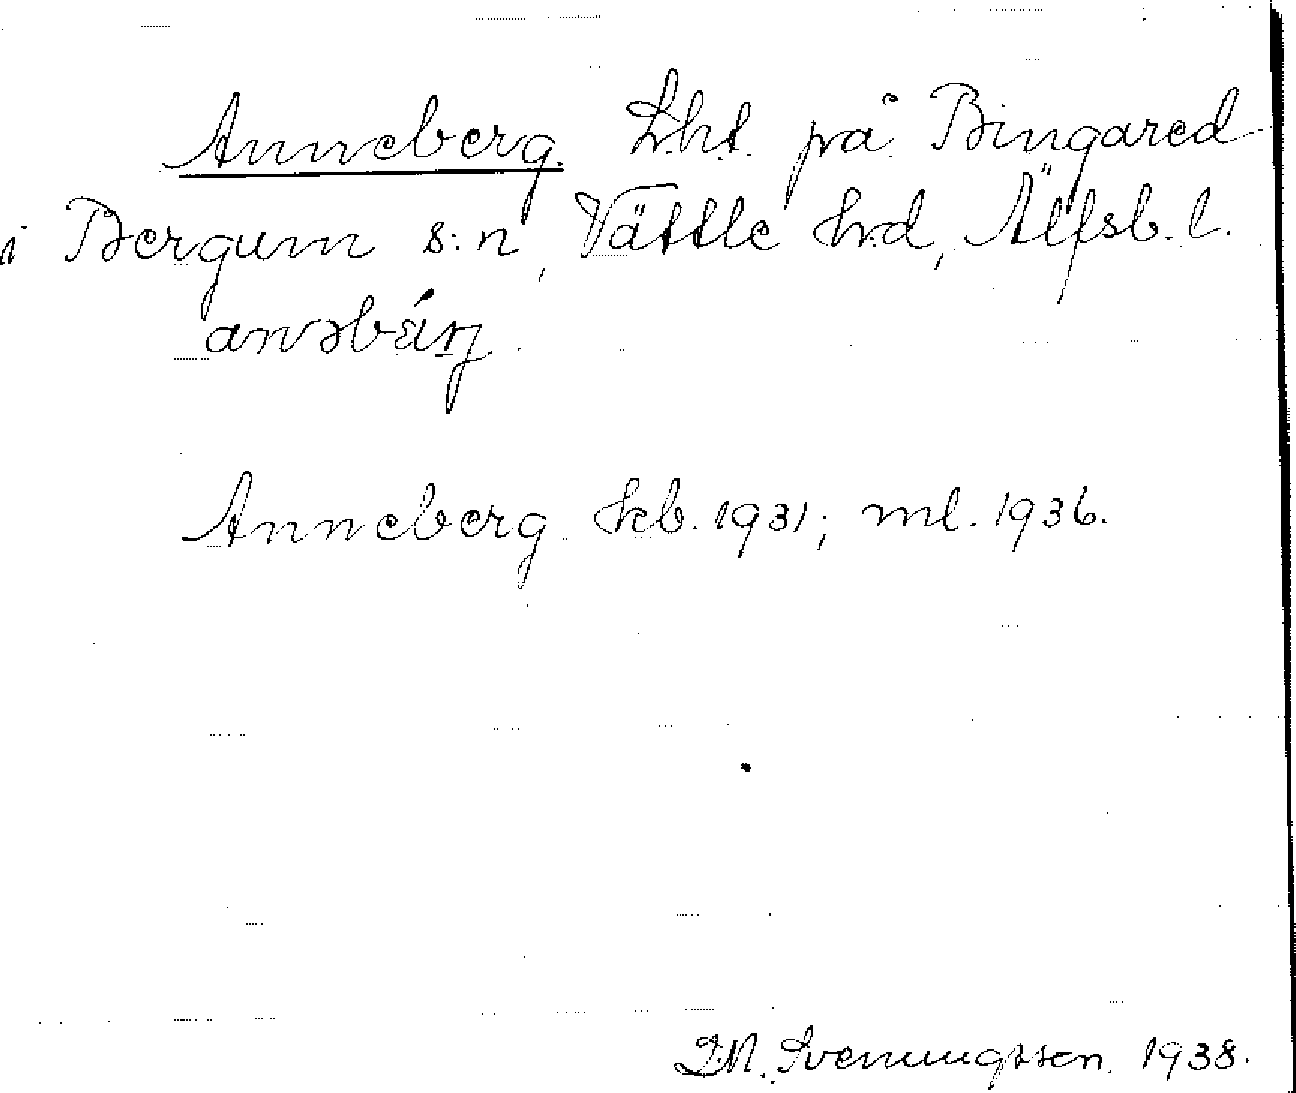 Anneberg. Lht. på Bingared
i Bergum s:n, Vättle hrd, Älfsb. l.
anəbærj.
Anneberg kb. 1931; ml. 1936.
D.N. Svenningsson. 1938.